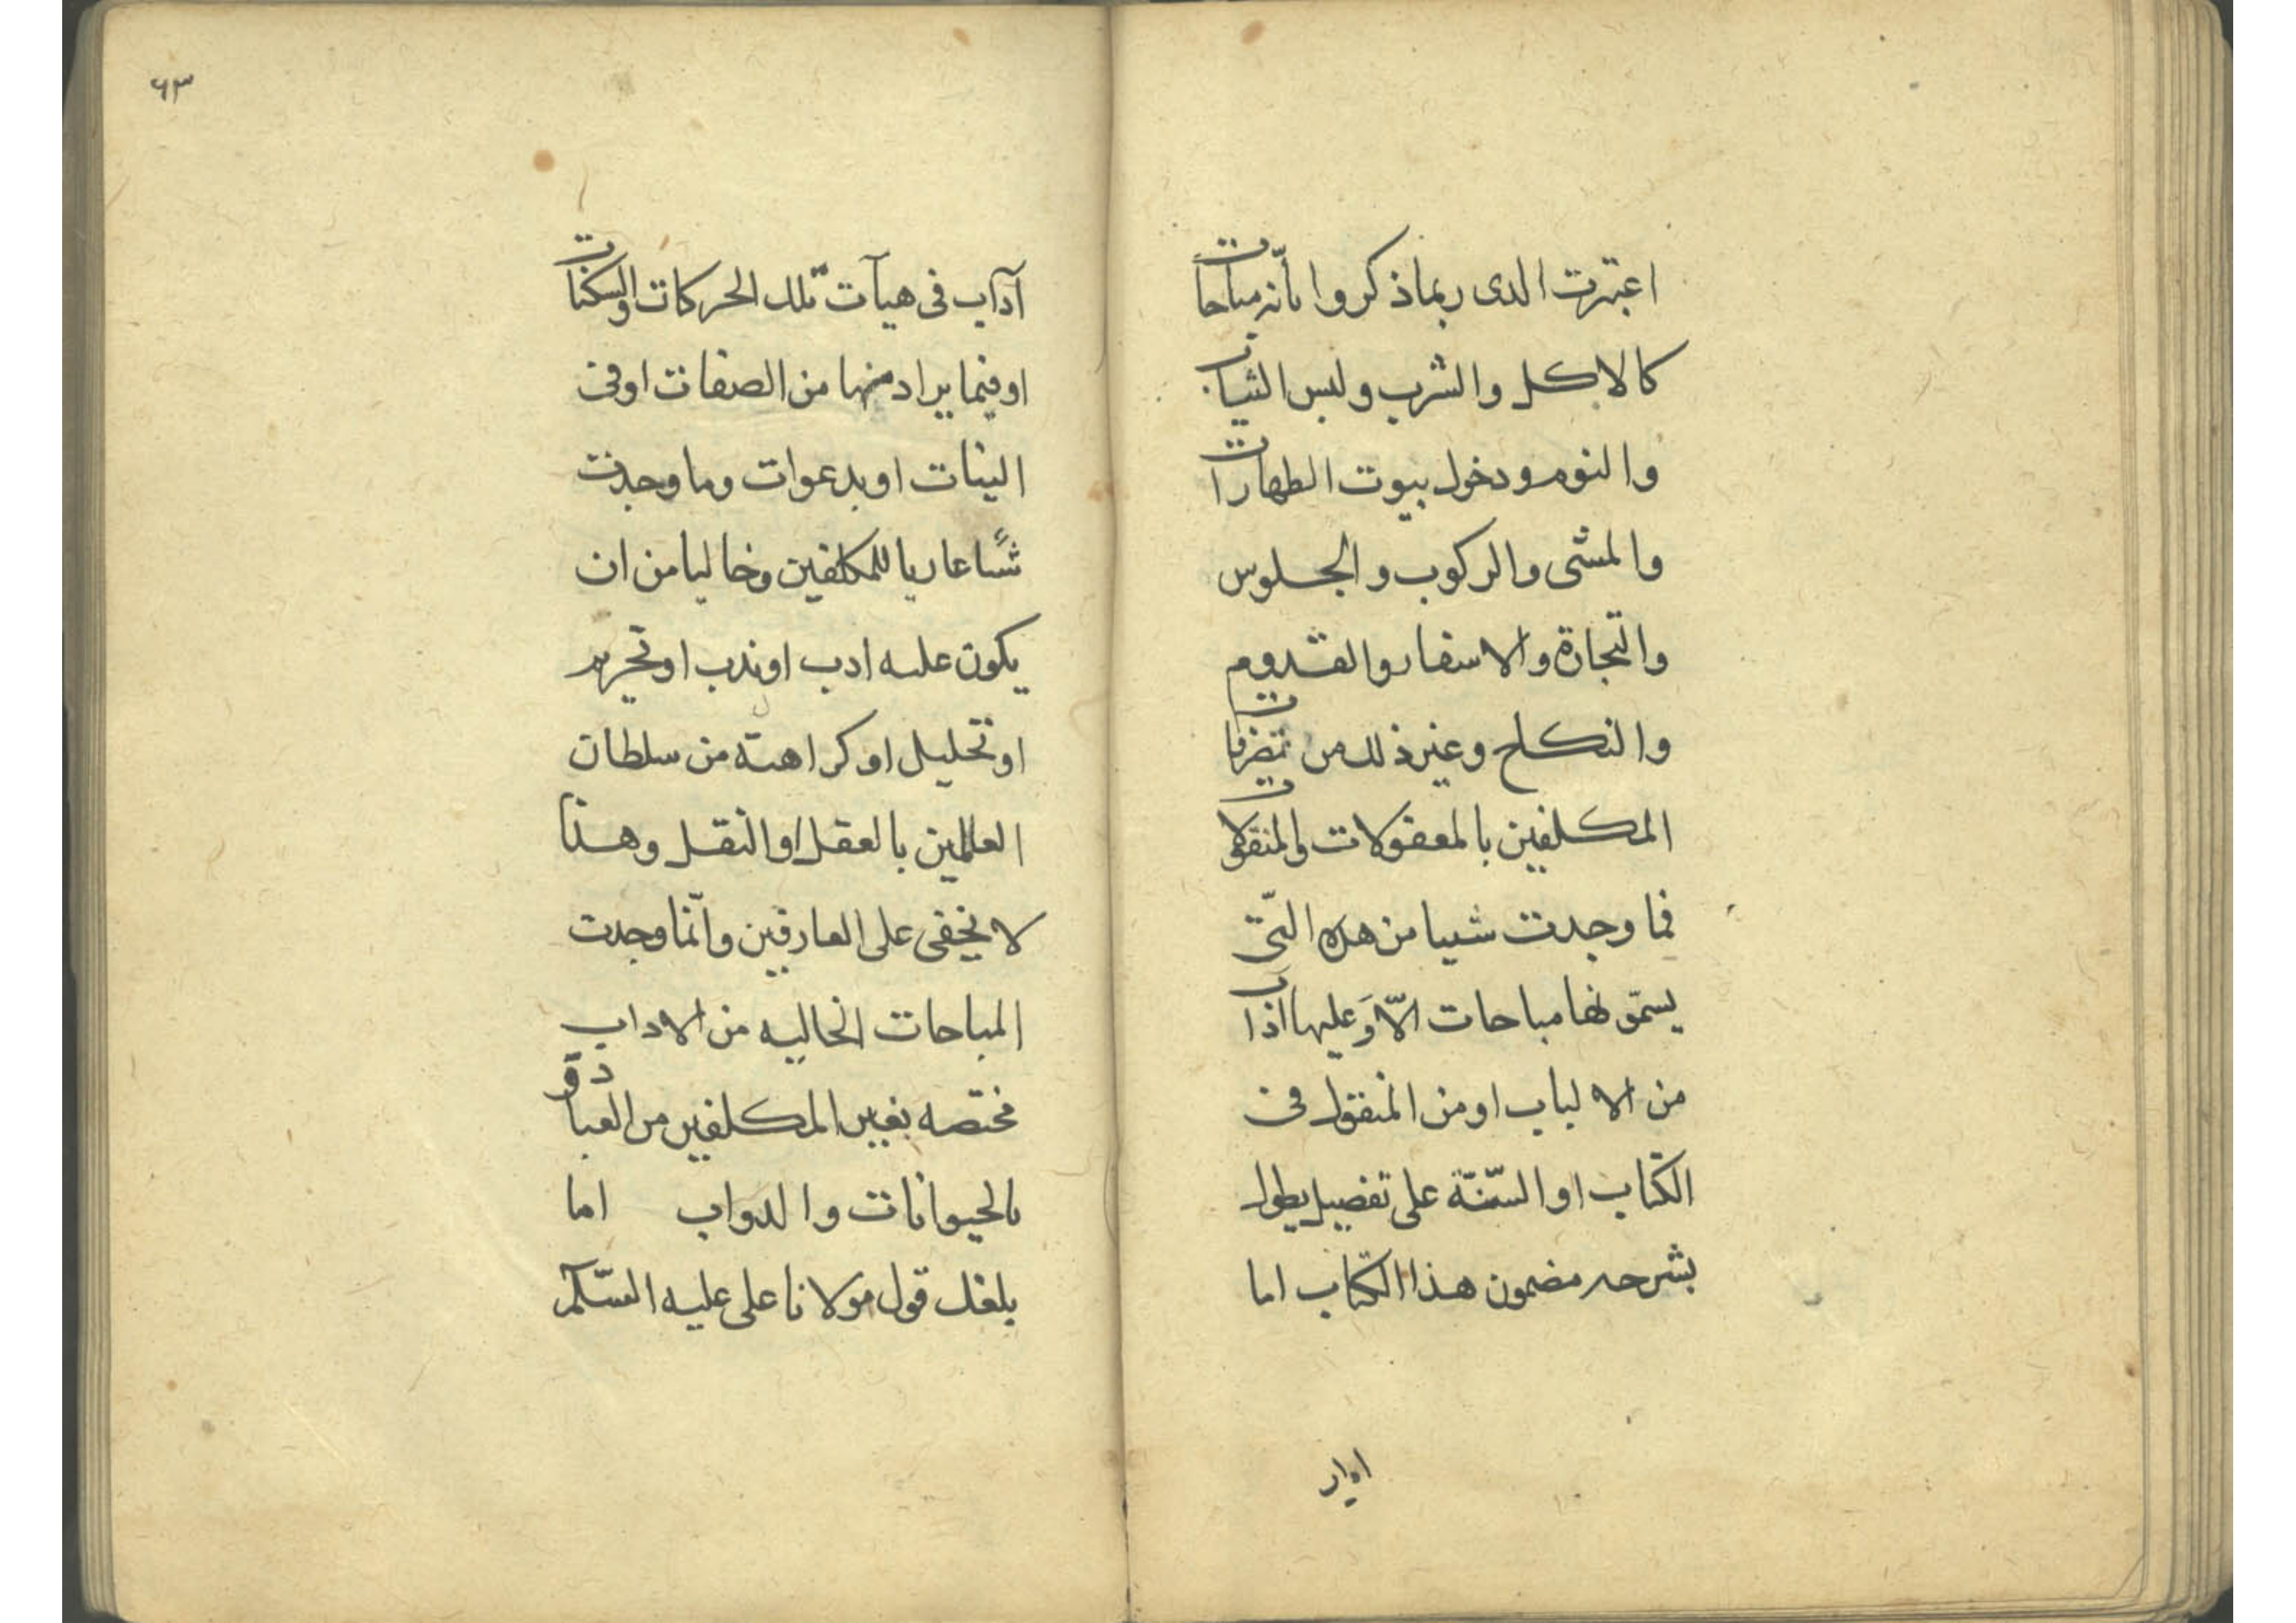 اعتبرت الذى ربما ذكروا بأنه مباحات
كالاكل والشرب ولبس الثياب
والنوم ودخول بيوت الطهارات
والمشى والركوب والجلوس
والتجارة والاسفار والقدوم
والنكاح وغير ذلك من تصرفات
المكلفين بالمعقولات والمنقولات
فما وجدت شيا من هذه التى
يسمونها مباحات الّا وَعليها اداب
من الالباب او من المنقول فى
الكتاب او السّنّة على تفصيل يطول
بشرحه مضمون هذا الكتاب اما
٦٣
آداب فى هيآت تلك الحركات والسكنات
او فيما يراد منها من الصفات او فى
النيات او بدعوات وما وجدت
شيئًا عاريا للمكلفين وخاليا من ان
يكون عليه ادب او ندب او تحريم
او تحليل او كراهته من سلطان
العالمين بالعقل او النقل وهذا
لا يخفى على العارفين وانّما وجدت
المباحات الخاليه من الاداب
مختصه بغير المكلفين من العباد و
بالحيوانات والدواب اما
بلغك قول مولانا على عليه السّلام